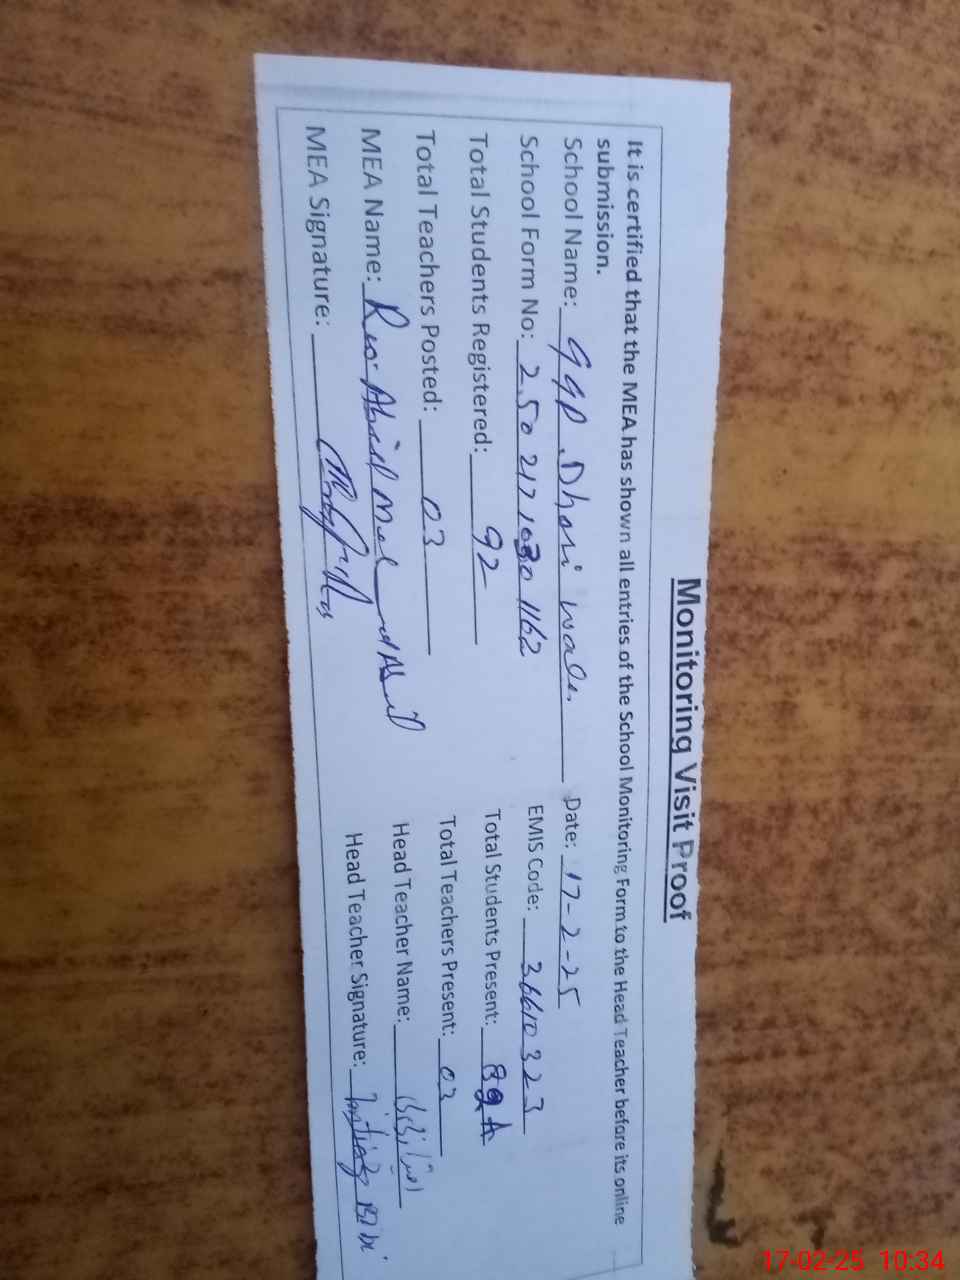 Monitoring Visit Proof
It is certified that the MEA has shown all entries of the School Monitoring Form to the Head Teacher before its online
submission.
School Name: GGP. Dhari wala. Date: 17-2-25
School Form No: 2502171030 1162 EMIS Code: 36610323
Total Students Registered: 92 Total Students Present:
Total Teachers Posted: 03 Total Teachers Present: 03
MEA Name: Head Teacher Name:
MEA Signature: Head Teacher Signature: Bibi
17-02-25 10:34